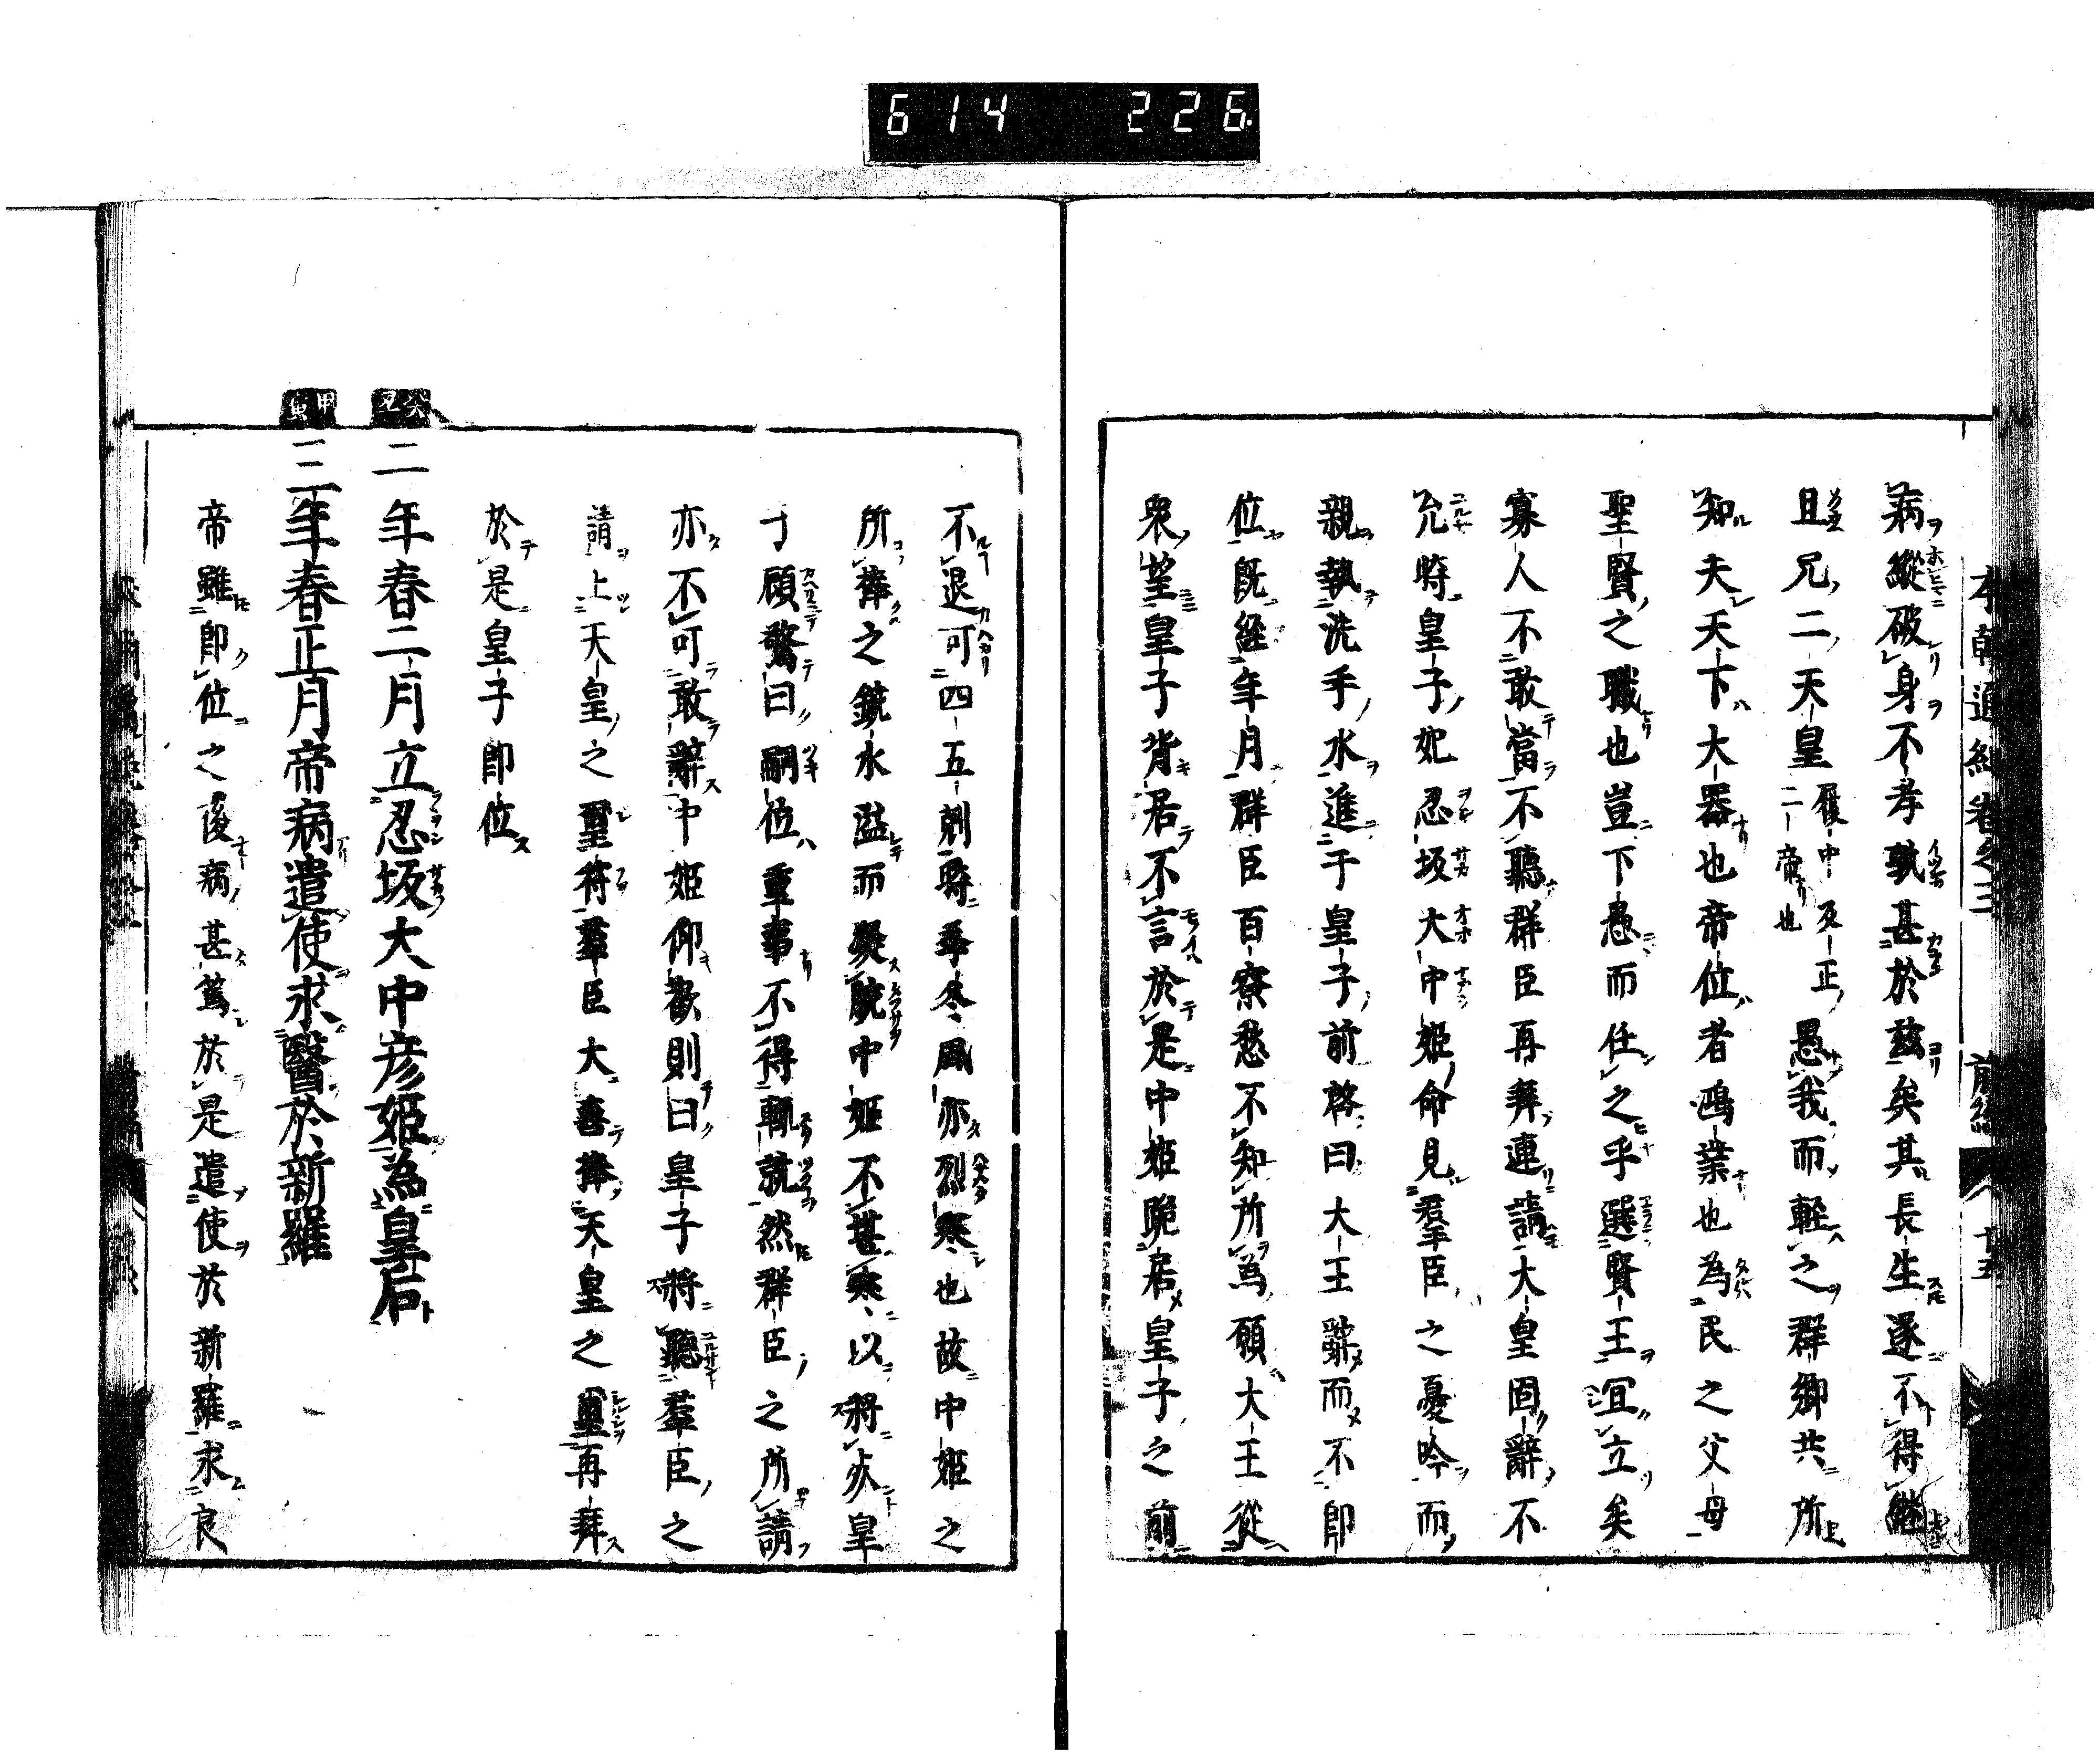 614 226
本朝通紀卷之三 前編 十五
病縱破身不孝孰甚於玆矣其長生遂不得繼
且兄二天皇履中反正二帝也愚我而輕之群卿共所
知夫天下大器也帝位者鴻業也為民之父母
聖賢之職也豈下愚而任之乎選賢王宜立矣
寡人不敢當不聽群臣再拜連請大皇固辭不
允時皇子妃忍坂大中姫命見羣臣之憂吟而
親執洗手水進于皇子前啓曰大王辭而不即
位既經年月群臣百寮愁不知所為願大王從
衆望皇子背居不言於是中姫跪居皇子之前
不退可四五剋時季冬風亦烈寒也故中姫之
所捧之鋺水溢而凝腕中姫不堪寒以將死皇
子顧驚曰嗣位重事不得輙就然群臣之所請
亦不可敢辭中姫仰歡則曰皇子將聽羣臣之
請上天皇之璽符羣臣大喜捧天皇之璽再拜
於是皇子即位
癸丑 二年春二月立忍坂大中彦姫為皇后
甲寅 三年春正月帝病遣使求醫於新羅
帝雖即位之後病甚篤於是遣使於新羅求良